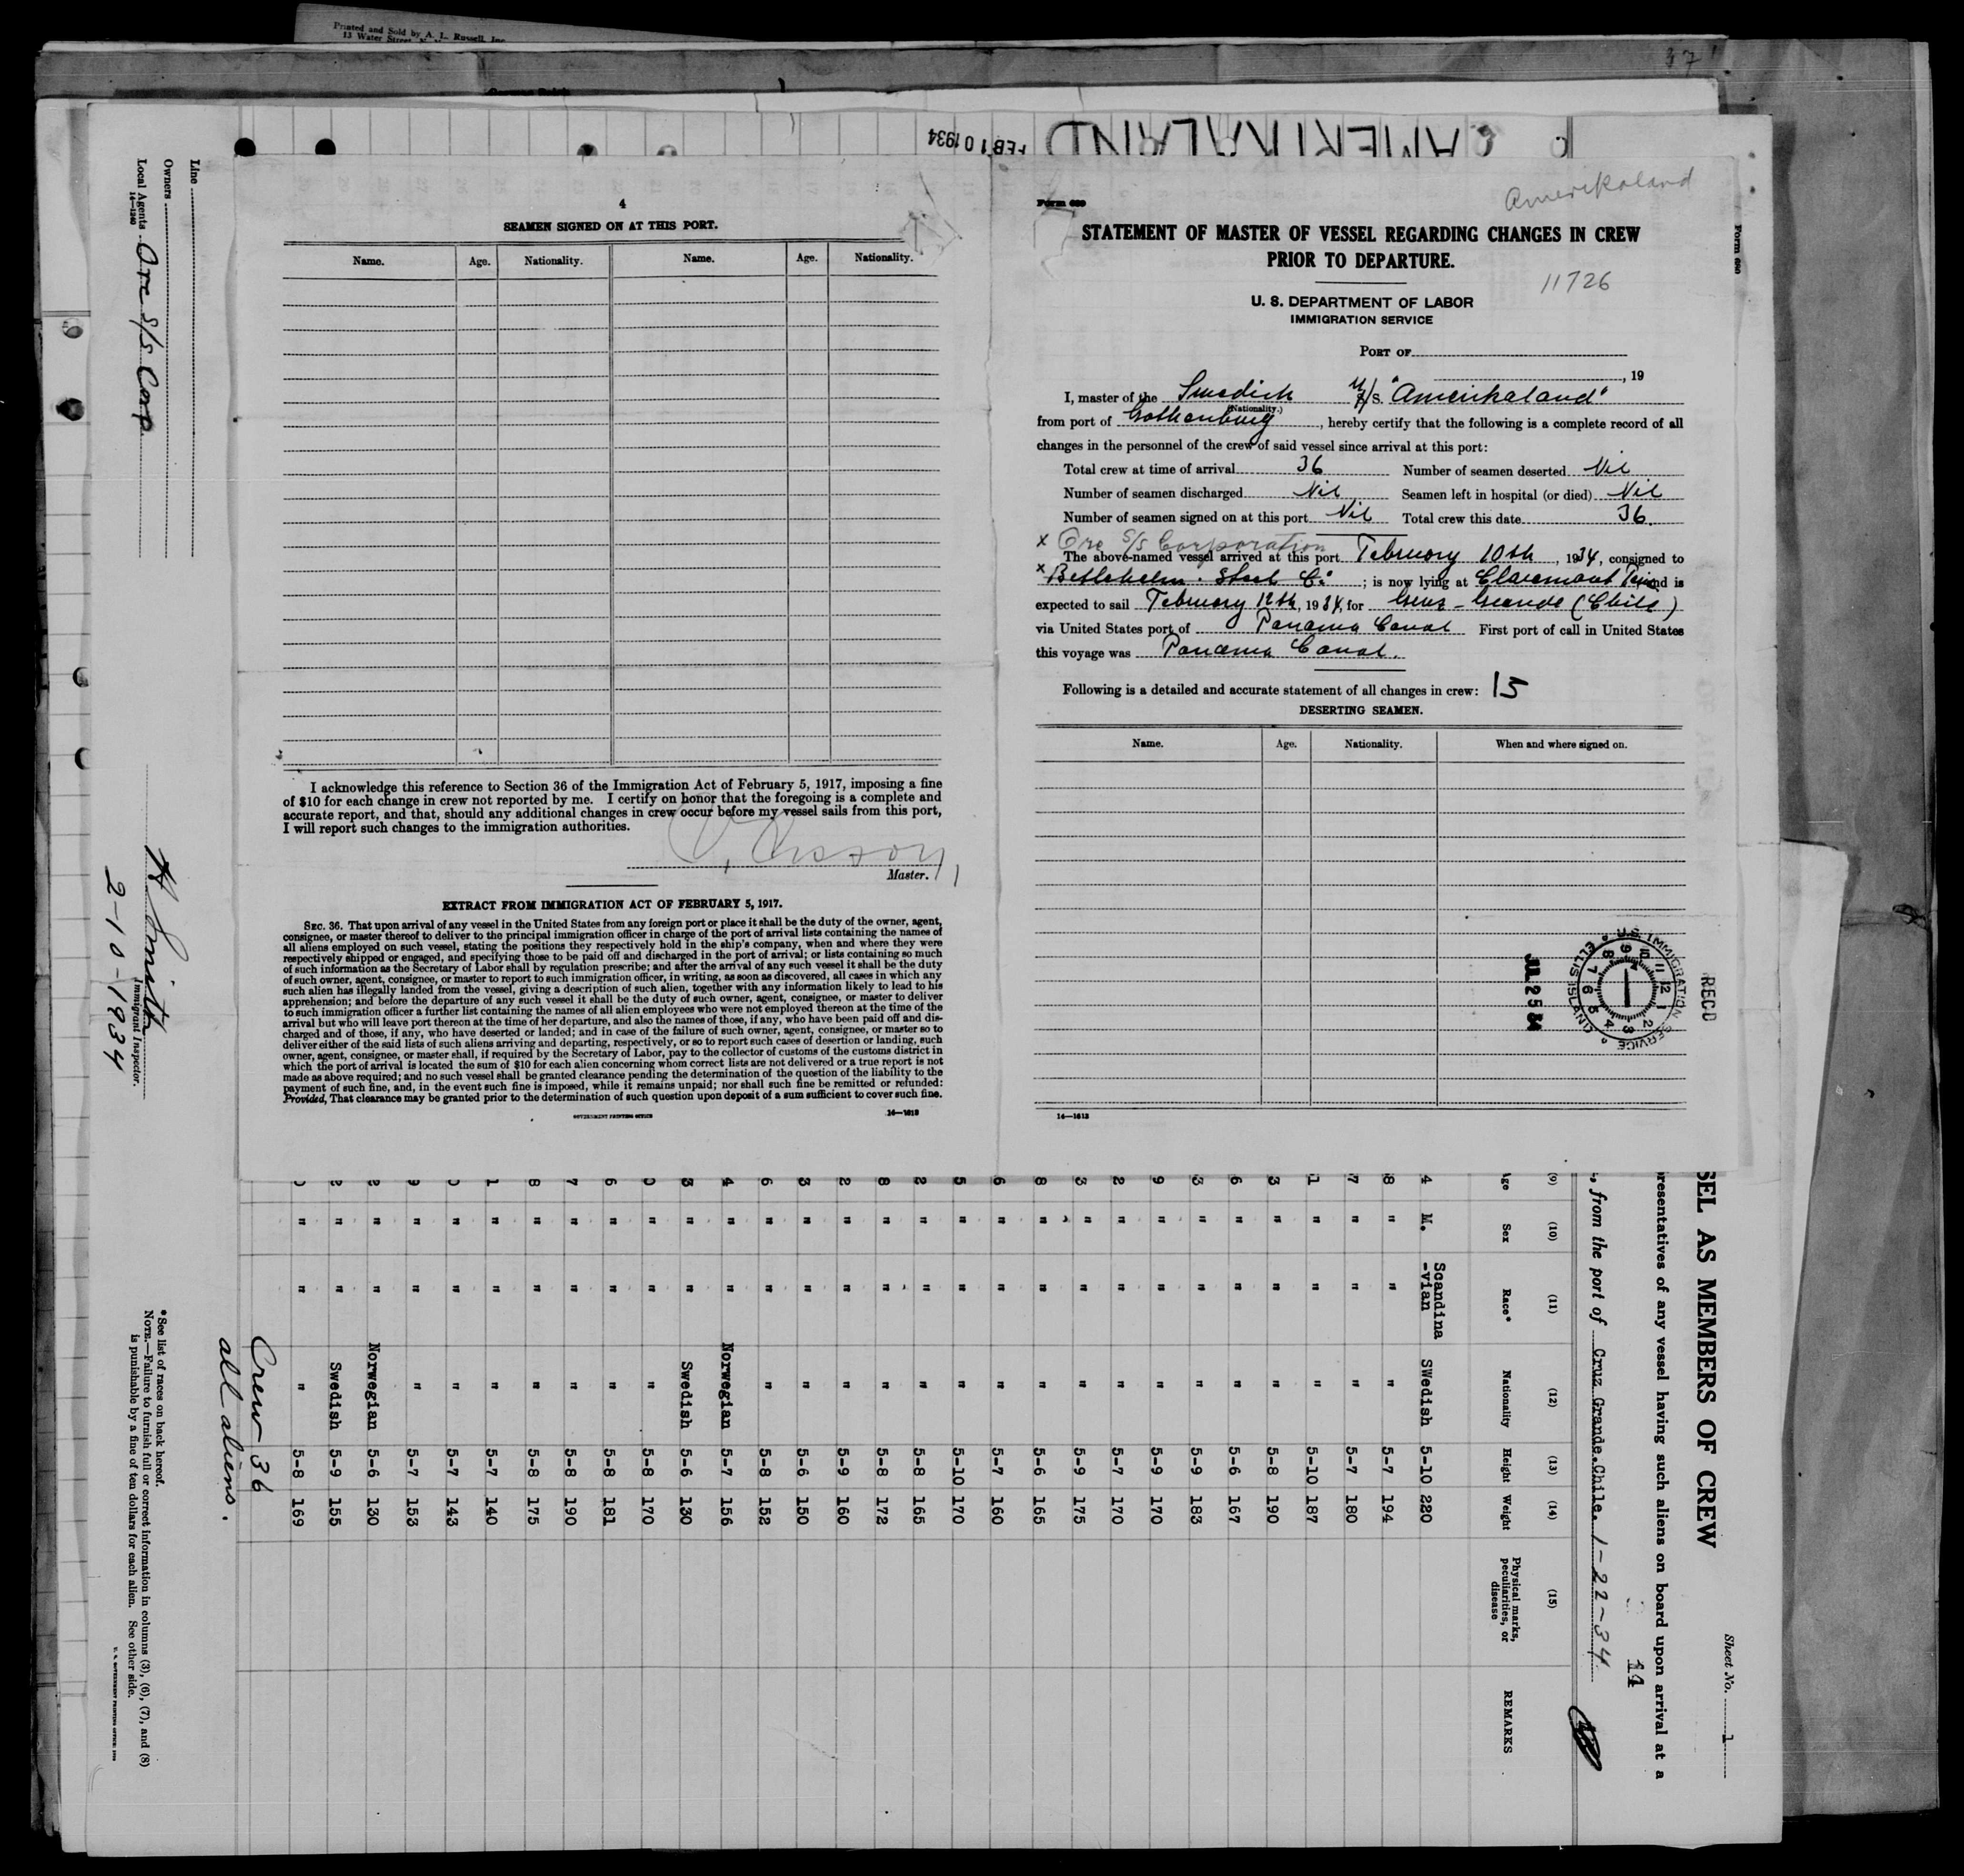 Printed and Sold by A. L. Russell, Inc.
13 Water Street
37
AMERIKALAND
FEB 10 1934
4
SEAMEN SIGNED ON AT THIS PORT.
Name. Age. Nationality. Name. Age. Nationality.
I acknowledge this reference to Section 36 of the Immigration Act of February 5, 1917, imposing a fine
of $10 for each change in crew not reported by me. I certify on honor that the foregoing is a complete and
accurate report, and that, should any additional changes in crew occur before my vessel sails from this port,
I will report such changes to the immigration authorities.
Master.
EXTRACT FROM IMMIGRATION ACT OF FEBRUARY 5, 1917.
SEC. 36. That upon arrival of any vessel in the United States from any foreign port or place it shall be the duty of the owner, agent,
consignee, or master thereof to deliver to the principal immigration officer in charge of the port of arrival lists containing the names of
all aliens employed on such vessel, stating the positions they respectively hold in the ship's company, when and where they were
respectively shipped or engaged, and specifying those to be paid off and discharged in the port of arrival; or lists containing so much
of such information as the Secretary of Labor shall by regulation prescribe; and after the arrival of any such vessel it shall be the duty
of such owner, agent, consignee, or master to report to such immigration officer, in writing, as soon as discovered, all cases in which any
such alien has illegally landed from the vessel, giving a description of such alien, together with any information likely to lead to his
apprehension; and before the departure of any such vessel it shall be the duty of such owner, agent, consignee, or master to deliver
to such immigration officer a further list containing the names of all alien employees who were not employed thereon at the time of the
arrival but who will leave port thereon at the time of her departure, and also the names of those, if any, who have been paid off and dis-
charged and of those, if any, who have deserted or landed; and in case of the failure of such owner, agent, consignee, or master so to
deliver either of the said lists of such aliens arriving and departing, respectively, or so to report such cases of desertion or landing, such
owner, agent, consignee, or master shall, if required by the Secretary of Labor, pay to the collector of customs of the customs district in
which the port of arrival is located the sum of $10 for each alien concerning whom correct lists are not delivered or a true report is not
made as above required; and no such vessel shall be granted clearance pending the determination of the question of the liability to the
payment of such fine, and, in the event such fine is imposed, while it remains unpaid; nor shall such fine be remitted or refunded:
Provided, That clearance may be granted prior to the determination of such question upon deposit of a sum sufficient to cover such fine.
GOVERNMENT PRINTING OFFICE
14—1613
Amerikaland
Form 689
STATEMENT OF MASTER OF VESSEL REGARDING CHANGES IN CREW
PRIOR TO DEPARTURE.
11726
U. S. DEPARTMENT OF LABOR
IMMIGRATION SERVICE
PORT OF
, 19
I, master of the Swedish M/S. "Amerikaland"
(Nationality.)
from port of Gothenburg, hereby certify that the following is a complete record of all
changes in the personnel of the crew of said vessel since arrival at this port:
Total crew at time of arrival 36 Number of seamen deserted Nil
Number of seamen discharged Nil Seamen left in hospital (or died) Nil
Number of seamen signed on at this port Nil Total crew this date 36
x Ore S/S Corporation
The above-named vessel arrived at this port February 10th, 1934, consigned to
x Bethlehem Steel Co; is now lying at Claremont and is
expected to sail February 12th, 1934, for Cruz-Grande (Chile)
via United States port of Panama Canal First port of call in United States
this voyage was Panama Canal.
Following is a detailed and accurate statement of all changes in crew: 15
DESERTING SEAMEN.
Name. Age. Nationality. When and where signed on.
14—1613
REC'D
U.S. IMMIGRATION SERVICE
ELLIS ISLAND
JUL 25 34
Form 680
Line
Owners
Local Agents Ore S/S Corp
14—1240
H Smith
Immigrant Inspector.
2-10-1934
*See list of races on back hereof.
NOTE.—Failure to furnish full or correct information in columns (3), (6), (7), and (8)
is punishable by a fine of ten dollars for each alien. See other side.
Sheet No. 1
SEL AS MEMBERS OF CREW
resentatives of any vessel having such aliens on board upon arrival at a
14
, from the port of Cruz Grande.Chile. 1-22-34
(9) (10) (11) (12) (13) (14) (15)
Age Sex Race* Nationality Height Weight Physical marks, peculiarities, or disease REMARKS
4 M. Scandina-vian SWedish 5-10 220
8 " " " 5-7 194
7 " " " 5-7 180
1 " " " 5-10 187
3 " " " 5-8 190
6 " " " 5-6 167
3 " " " 5-9 183
9 " " " 5-9 170
2 " " " 5-7 170
3 " " " 5-9 175
8 " " " 5-6 165
6 " " " 5-7 160
5 " " " 5-10 170
2 " " " 5-8 165
8 " " " 5-8 172
2 " " " 5-9 160
3 " " " 5-6 150
6 " " " 5-8 152
4 " " Norwegian 5-7 156
3 " " Swedish 5-6 130
0 " " " 5-8 170
6 " " " 5-8 181
7 " " " 5-8 190
8 " " " 5-8 175
1 " " " 5-7 140
0 " " " 5-7 143
9 " " " 5-7 153
2 " " Norwegian 5-6 130
2 " " Swedish 5-9 155
" " " 5-8 169
Crew 36
all aliens.